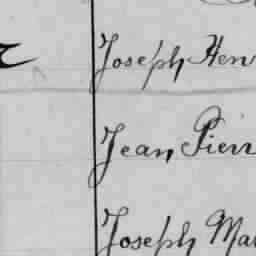 Joseph Hen
Jean Pierr
Joseph Ma